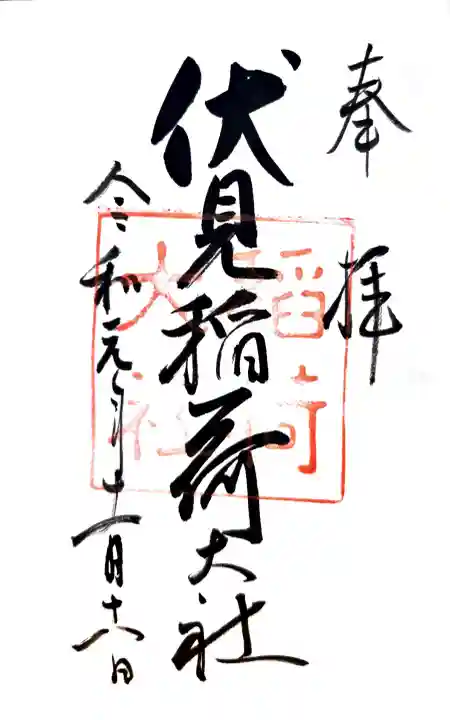 奉拝
伏見稲荷大社
令和元年十一月十八日
稲荷
大社